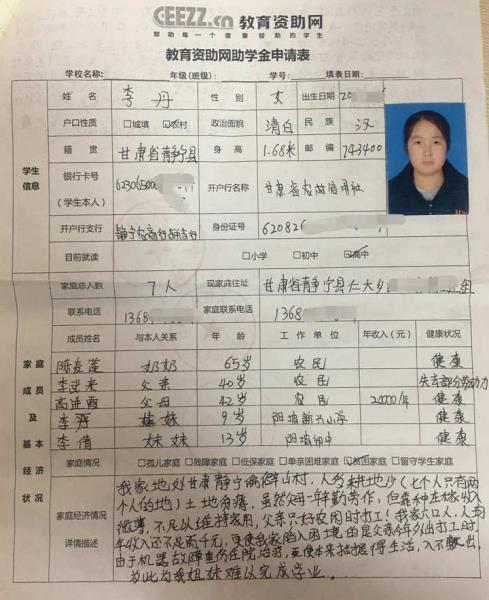 CEEZZ.cn 教育资助网
帮助每一个需要帮助的学生
教育资助网助学金申请表
学校名称: 年级(班级): 学号: 填表日期:
学生信息
姓名 李丹 性别 女 出生日期 20
户口性质 □城填 ☑农村 政治面貌 清白 民族 汉
籍贯 甘肃省静宁县 身高 1.68米 邮编 743400
银行卡号(学生本人) 623065000 开户行名称 甘肃省农村信用社
开户行支行 静宁农商行 身份证号 620826
目前就读 □小学 □初中 ☑高中
家庭成员及基本经济状况
家庭总人数 7人 现家庭住址 甘肃省静宁县仁大乡
联系电话 1368 家庭联系电话 1368
成员姓名 与本人关系 年龄 工作单位 年收入(元) 健康状况
奶奶 65岁 农民 健康
父亲 40岁 农民 失去部分劳动力
父母 42岁 农民 20000/年 健康
妹 9岁 健康
李倩 妹妹 13岁 健康
家庭情况 □孤儿家庭 □残障家庭 □低保家庭 □单亲困难家庭 ☑贫困家庭 □留守学生家庭
家庭经济情况详情描述
我家地处甘肃静宁偏僻山村,人多耕地少(七个人只有两
个人的地)土地贫瘠,虽然父母一年勤劳作,但靠种庄稼收入
微薄,不足以维持家用,父亲只好农闲时打工!我家六口人,人均
年收入还不足两千元,更使我家陷入困境的是父亲今年外出打工时,
由于机器故障重伤住院治疗,更使本来拮据得生活,入不敷出,
为此为我姐妹难以完成学业。